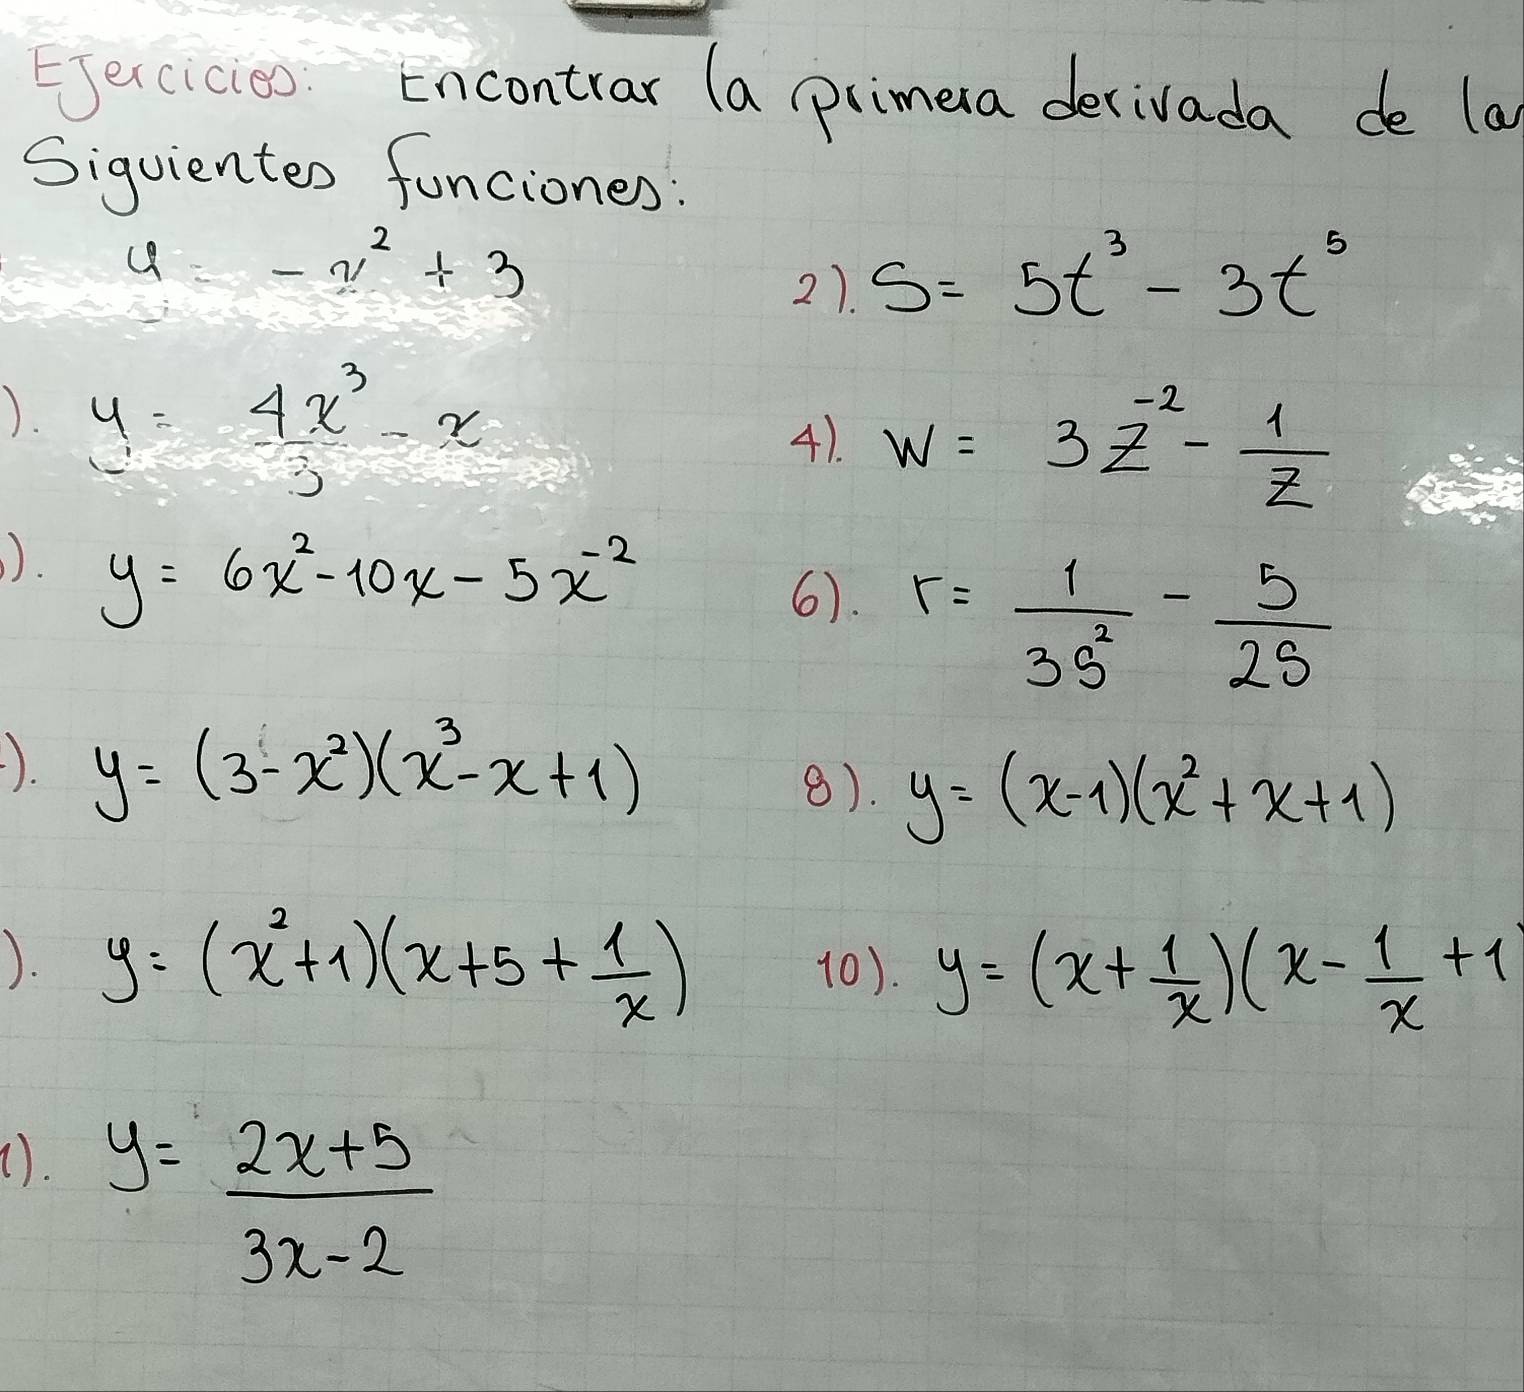 Ejercicios: Encontrar la primera derivada de la
Siguientes funciones:
y = -x² + 3
2). S = 5t³ - 3t⁵
). y = 4x³/3 - x
4). w = 3z⁻² - 1/z
). y = 6x² - 10x - 5x⁻²
6). r = 1/3s² - 5/2s
). y = (3 - x²)(x³ - x + 1)
8). y = (x-1)(x² + x + 1)
). y = (x² + 1)(x + 5 + 1/x)
10). y = (x + 1/x)(x - 1/x + 1
1). y = 2x+5/3x-2